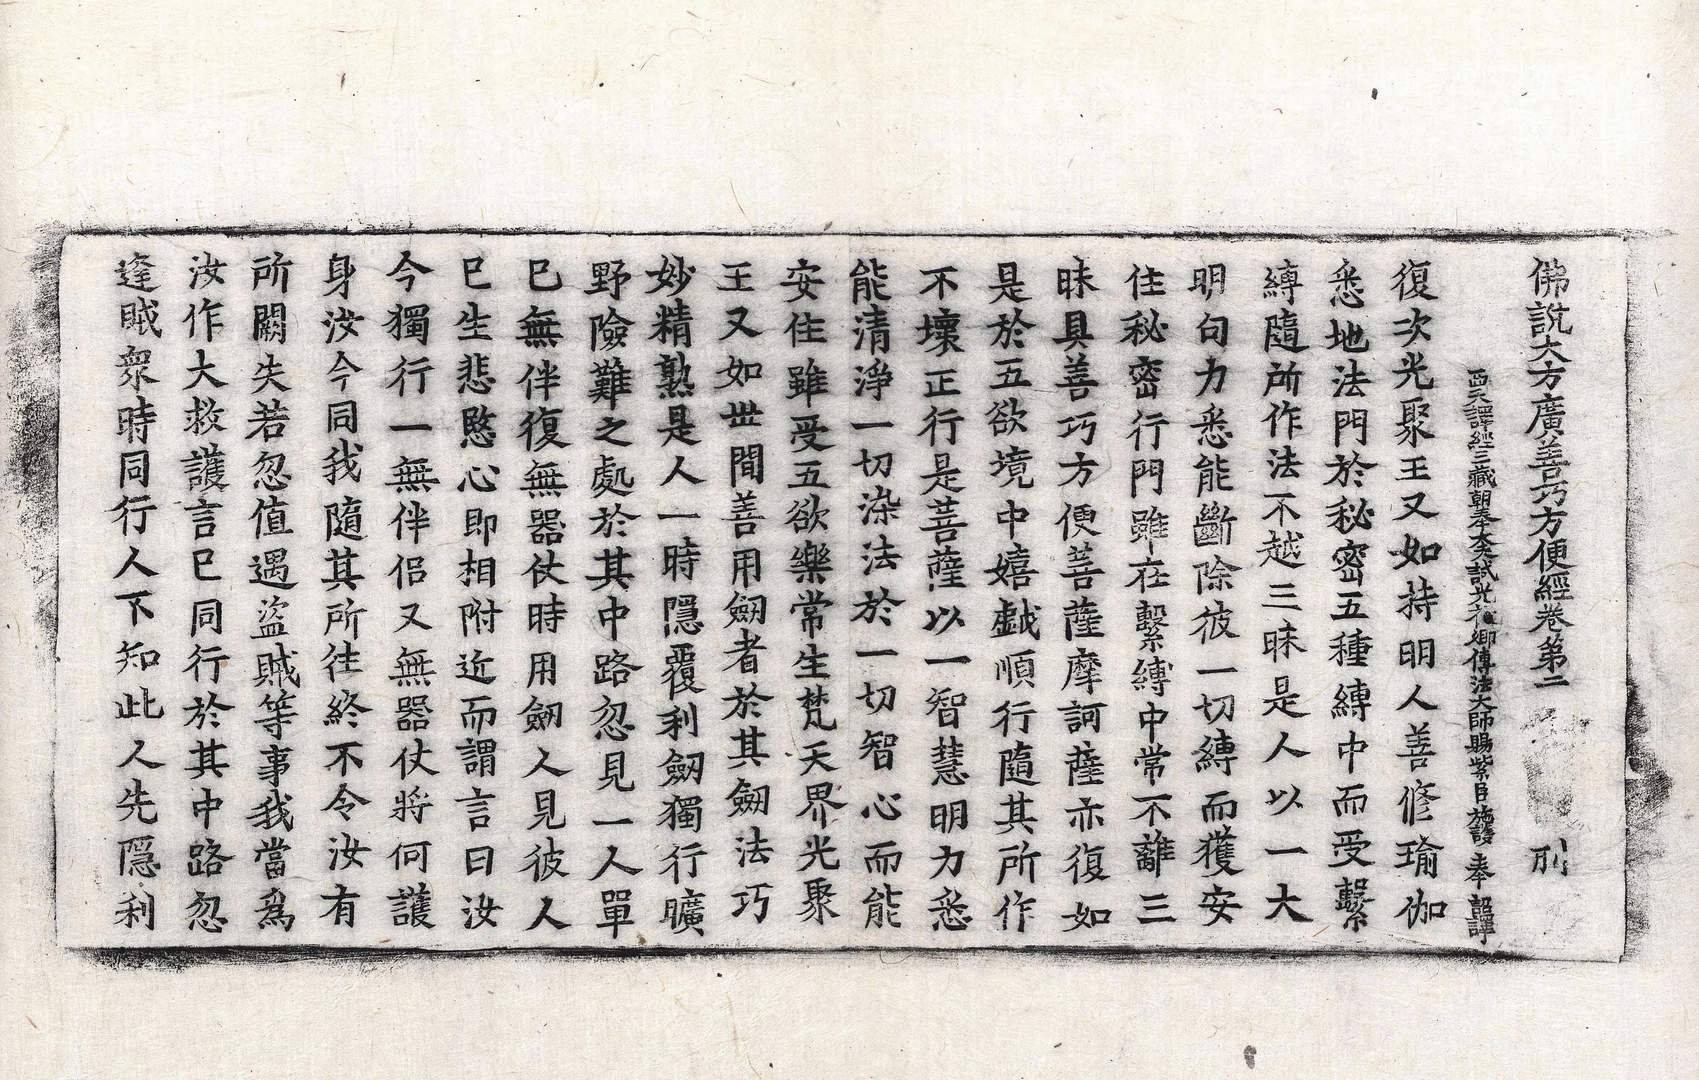 佛說大方廣善巧方便經卷第二 刖
西天譯經三藏朝奉大夫試光祿卿傳法大師賜紫臣施護奉 詔譯
復次光聚王又如持明人善修瑜伽
悉地法門於秘密五種縛中而受繫
縛隨所作法不越三昧是人以一大
明句力悉能斷除彼一切縛而獲安
住秘密行門雖在繫縛中常不離三
昧具善巧方便菩薩摩訶薩亦復如
是於五欲境中嬉戱順行隨其所作
不壞正行是菩薩以一智慧明力悉
能清淨一切染法於一切智心而能
安住雖受五欲樂常生梵天界光聚
王又如世間善用劒者於其劒法巧
妙精熟是人一時隱覆利劒獨行曠
野險難之處於其中路忽見一人單
巳無伴復無器仗時用劒人見彼人
巳生悲愍心即相附近而謂言曰汝
今獨行一無伴侶又無器仗將何護
身汝今同我隨其所往終不令汝有
所闕失若忽值遇盜賊等事我當爲
汝作大救護言巳同行於其中路忽
逢賊衆時同行人不知此人先隱利